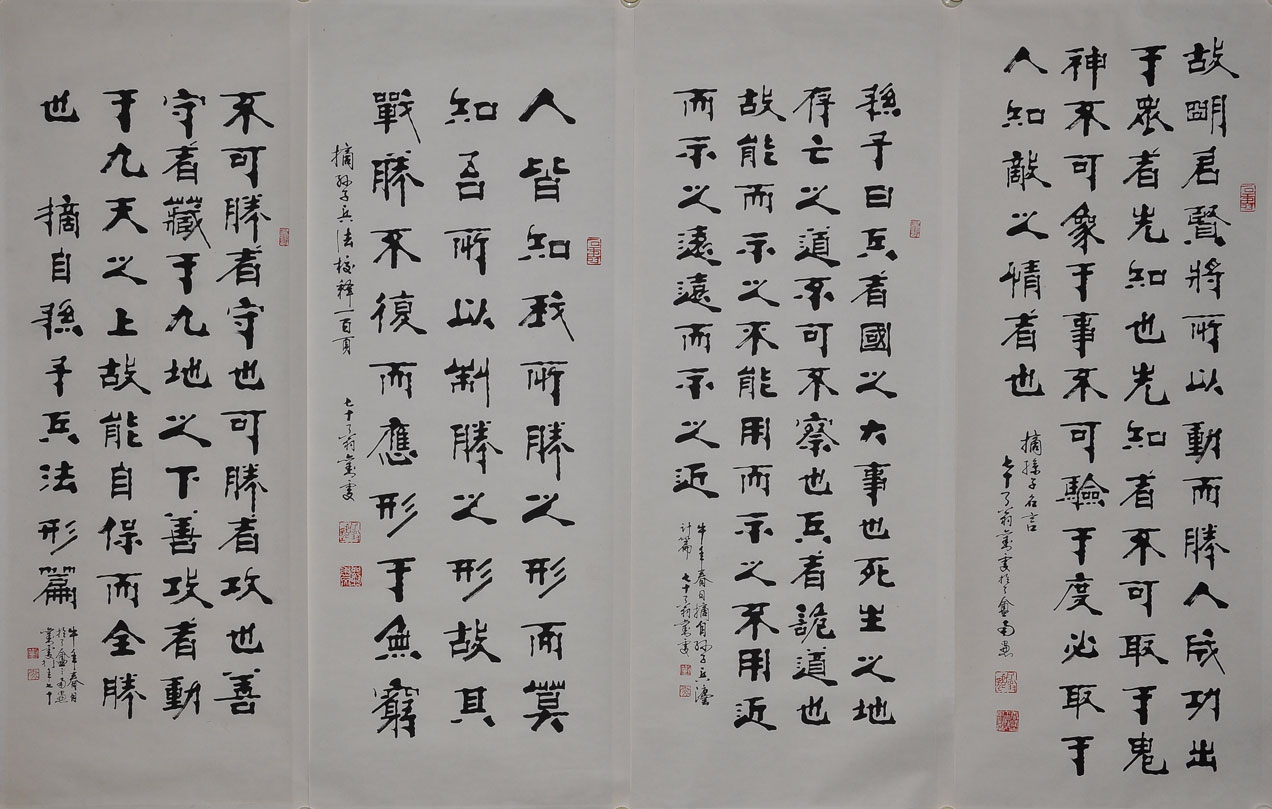 故明君賢將所以動而勝人成功出
于衆者先知也先知者不可取于鬼
神不可象于事不可驗于度必取于
人知敵之情者也
摘孫子名言
七十了翁
孫子曰兵者國之大事也死生之地
存亡之道不可不察也兵者詭道也
故能而示之不能用而示之不用近
而示之遠遠而示之近
牛年春日摘自孫子兵灋
計篇 七十了翁
人皆知我所勝之形而莫
知吾所以制勝之形故其
戰勝不復而應形于無窮
摘孫子兵法校釋一百頁 七十了翁
不可勝者守也可勝者攻也善
守者藏于九地之下善攻者動
于九天之上故能自保而全勝
也 摘自孫子兵法形篇
牛年春日